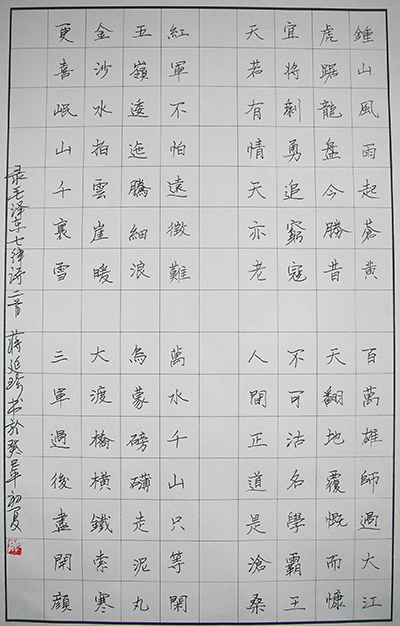 鍾山風雨起蒼黃 百萬雄師過大江
虎踞龍盤今勝昔 天翻地覆慨而慷
宜將剩勇追窮寇 不可沽名學霸王
天若有情天亦老 人間正道是滄桑
紅軍不怕遠徵難 萬水千山只等閑
五嶺逶迤騰細浪 烏蒙磅礴走泥丸
金沙水拍雲崖暖 大渡橋橫鐵索寒
更喜岷山千裏雪 三軍過後盡開顏
录毛泽东七律诗二首 蒋延珍书於癸初夏